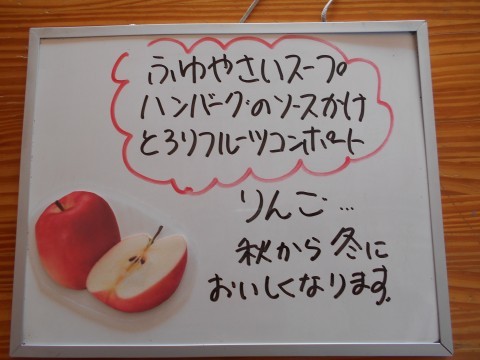 ふゆやさいスープ
ハンバーグのソースかけ
とろりフルーツコンポート
りんご…
秋から冬に
おいしくなります。